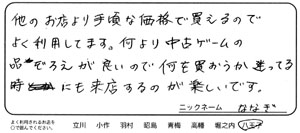 他のお店より手頃な価格で買えるので
よく利用してます。何より中古ゲームの
品ぞろえが良いので何を買おうか迷ってる
時にも来店するのが楽しいです。
ニックネーム ななぎ
よく利用されるお店を
○で囲んでください。 立川 小作 羽村 昭島 青梅 高幡 堀之内 八王子